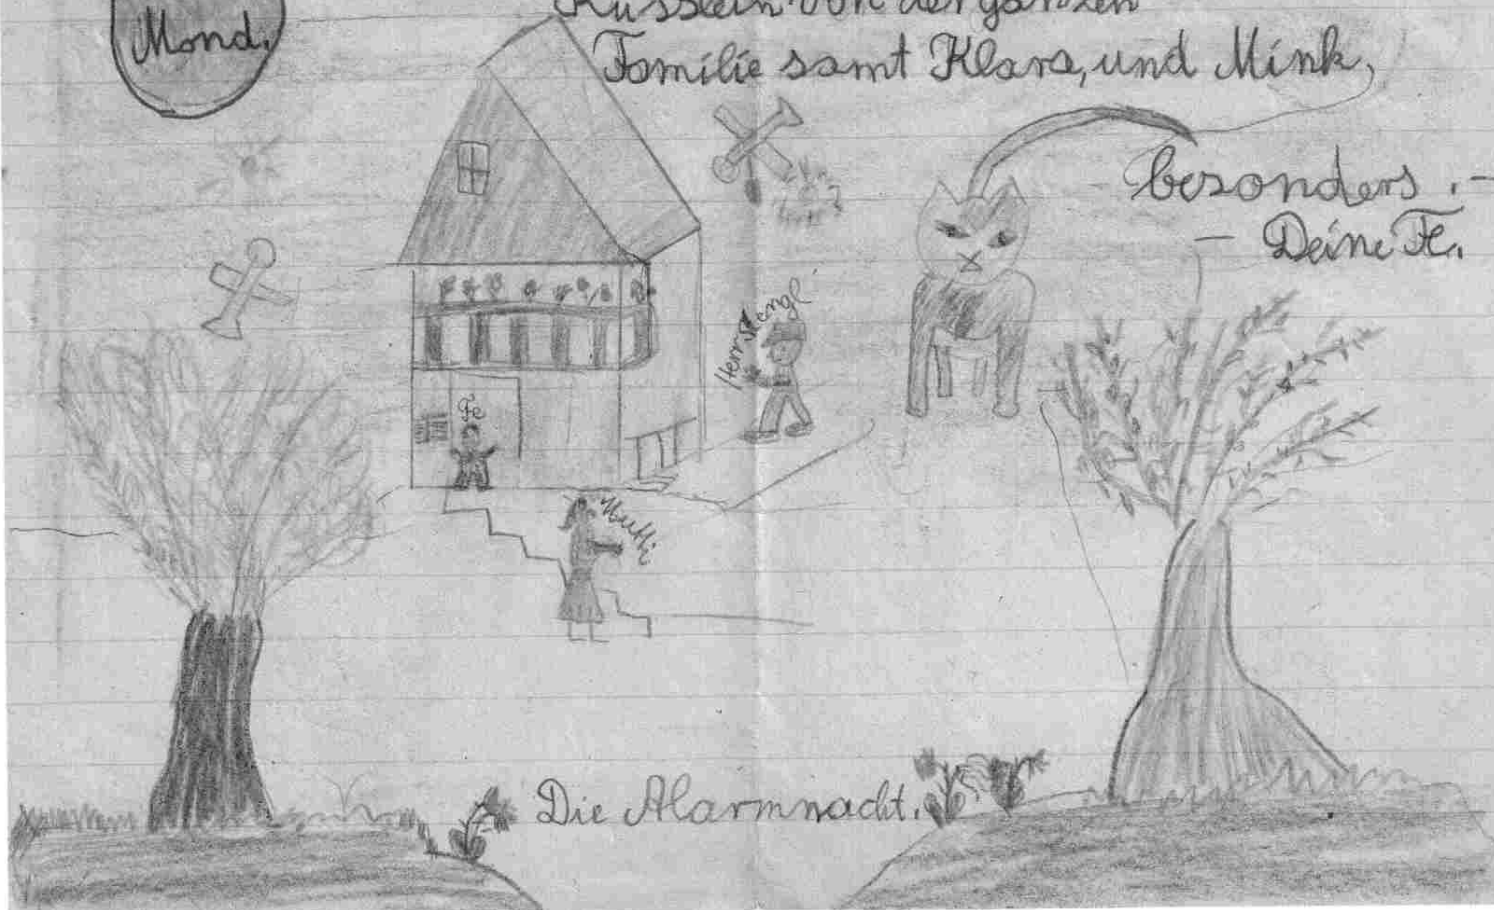 Mond.
Küsslein von der ganzen
Familie samt Klara, und Mink,
besonders . –
– Deine Fe.
Herr Stengl
Fe
Mutti
Die Alarmnacht.